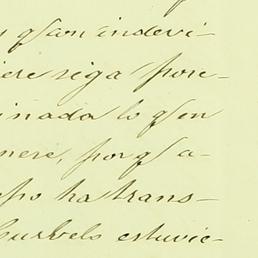 q̃ son indevi-
siga pore-
inada lo q̃ en
nere, porq̃ a-
po ha trans-
Curbelo estuvie-